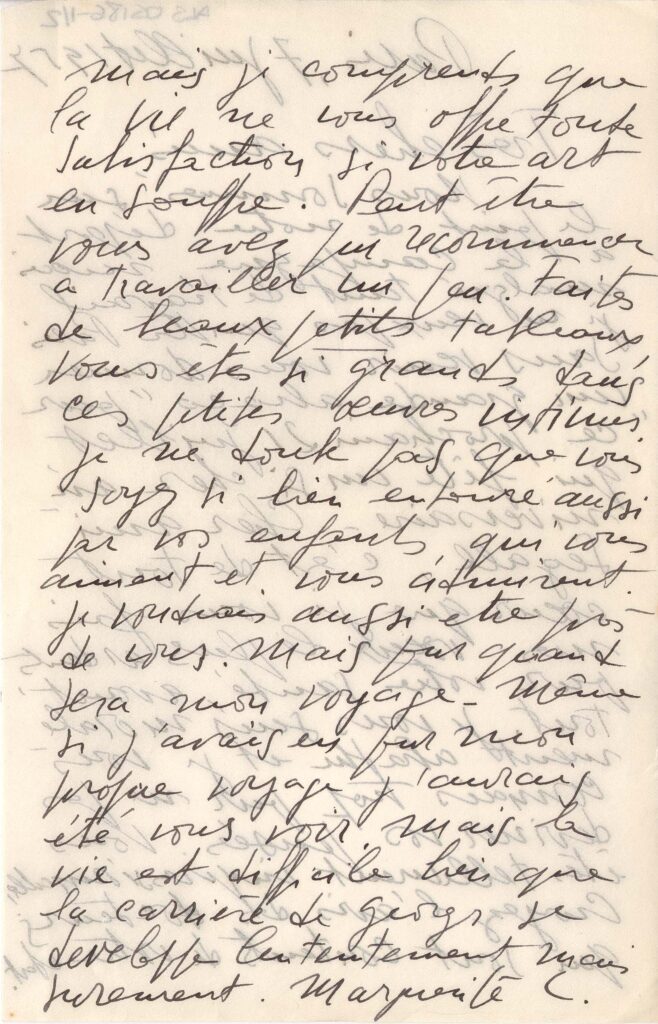 mais je comprends que
la vie ne vous offre toute
satisfaction si votre art
en souffre. Peut être
vous avez pu recommencer
a travailler un peu. Faites
de beaux petits tableaux,
vous êtes si grands dans
ces petites œuvres intimes
je ne doute pas que vous
soyez si bien entouré aussi
par vos enfants qui vous
aiment et vous admirent.
je voudrais aussi etre près
de vous. Mais pur quand
sera mon voyage - Même
si j'avais eu pur mon
propre voyage j'aurais
été vous voir, mais la
vie est difficile bien que
la carrière de Georgs se
develoffe lentement mais
surement. Marguerite C.